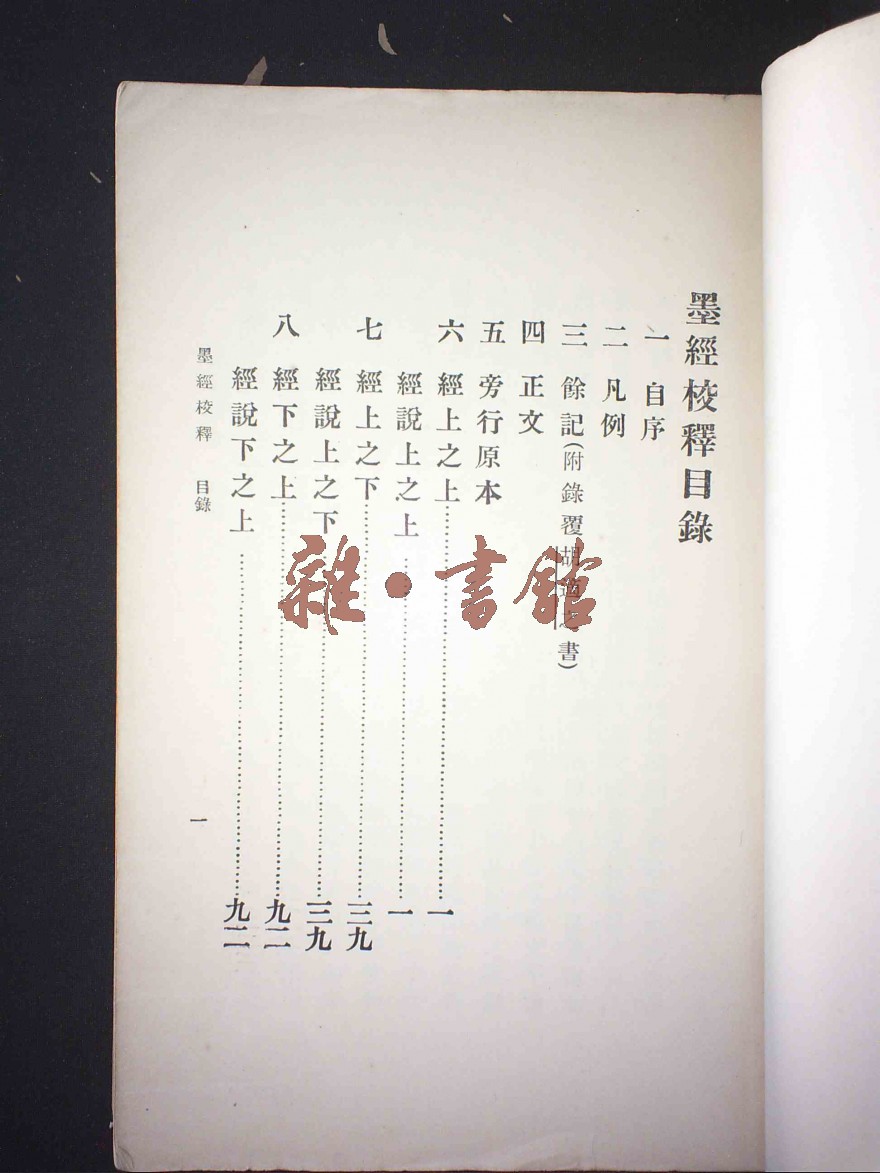 墨經校釋目錄
一 自序
二 凡例
三 餘記(附錄覆胡適之書)
四 正文
五 旁行原本
六 經上之上……一
經說上之上……一
七 經上之下……三九
經說上之下……三九
八 經下之上……九二
經說下之上……九二
墨經校釋 目錄
一
雜·書館